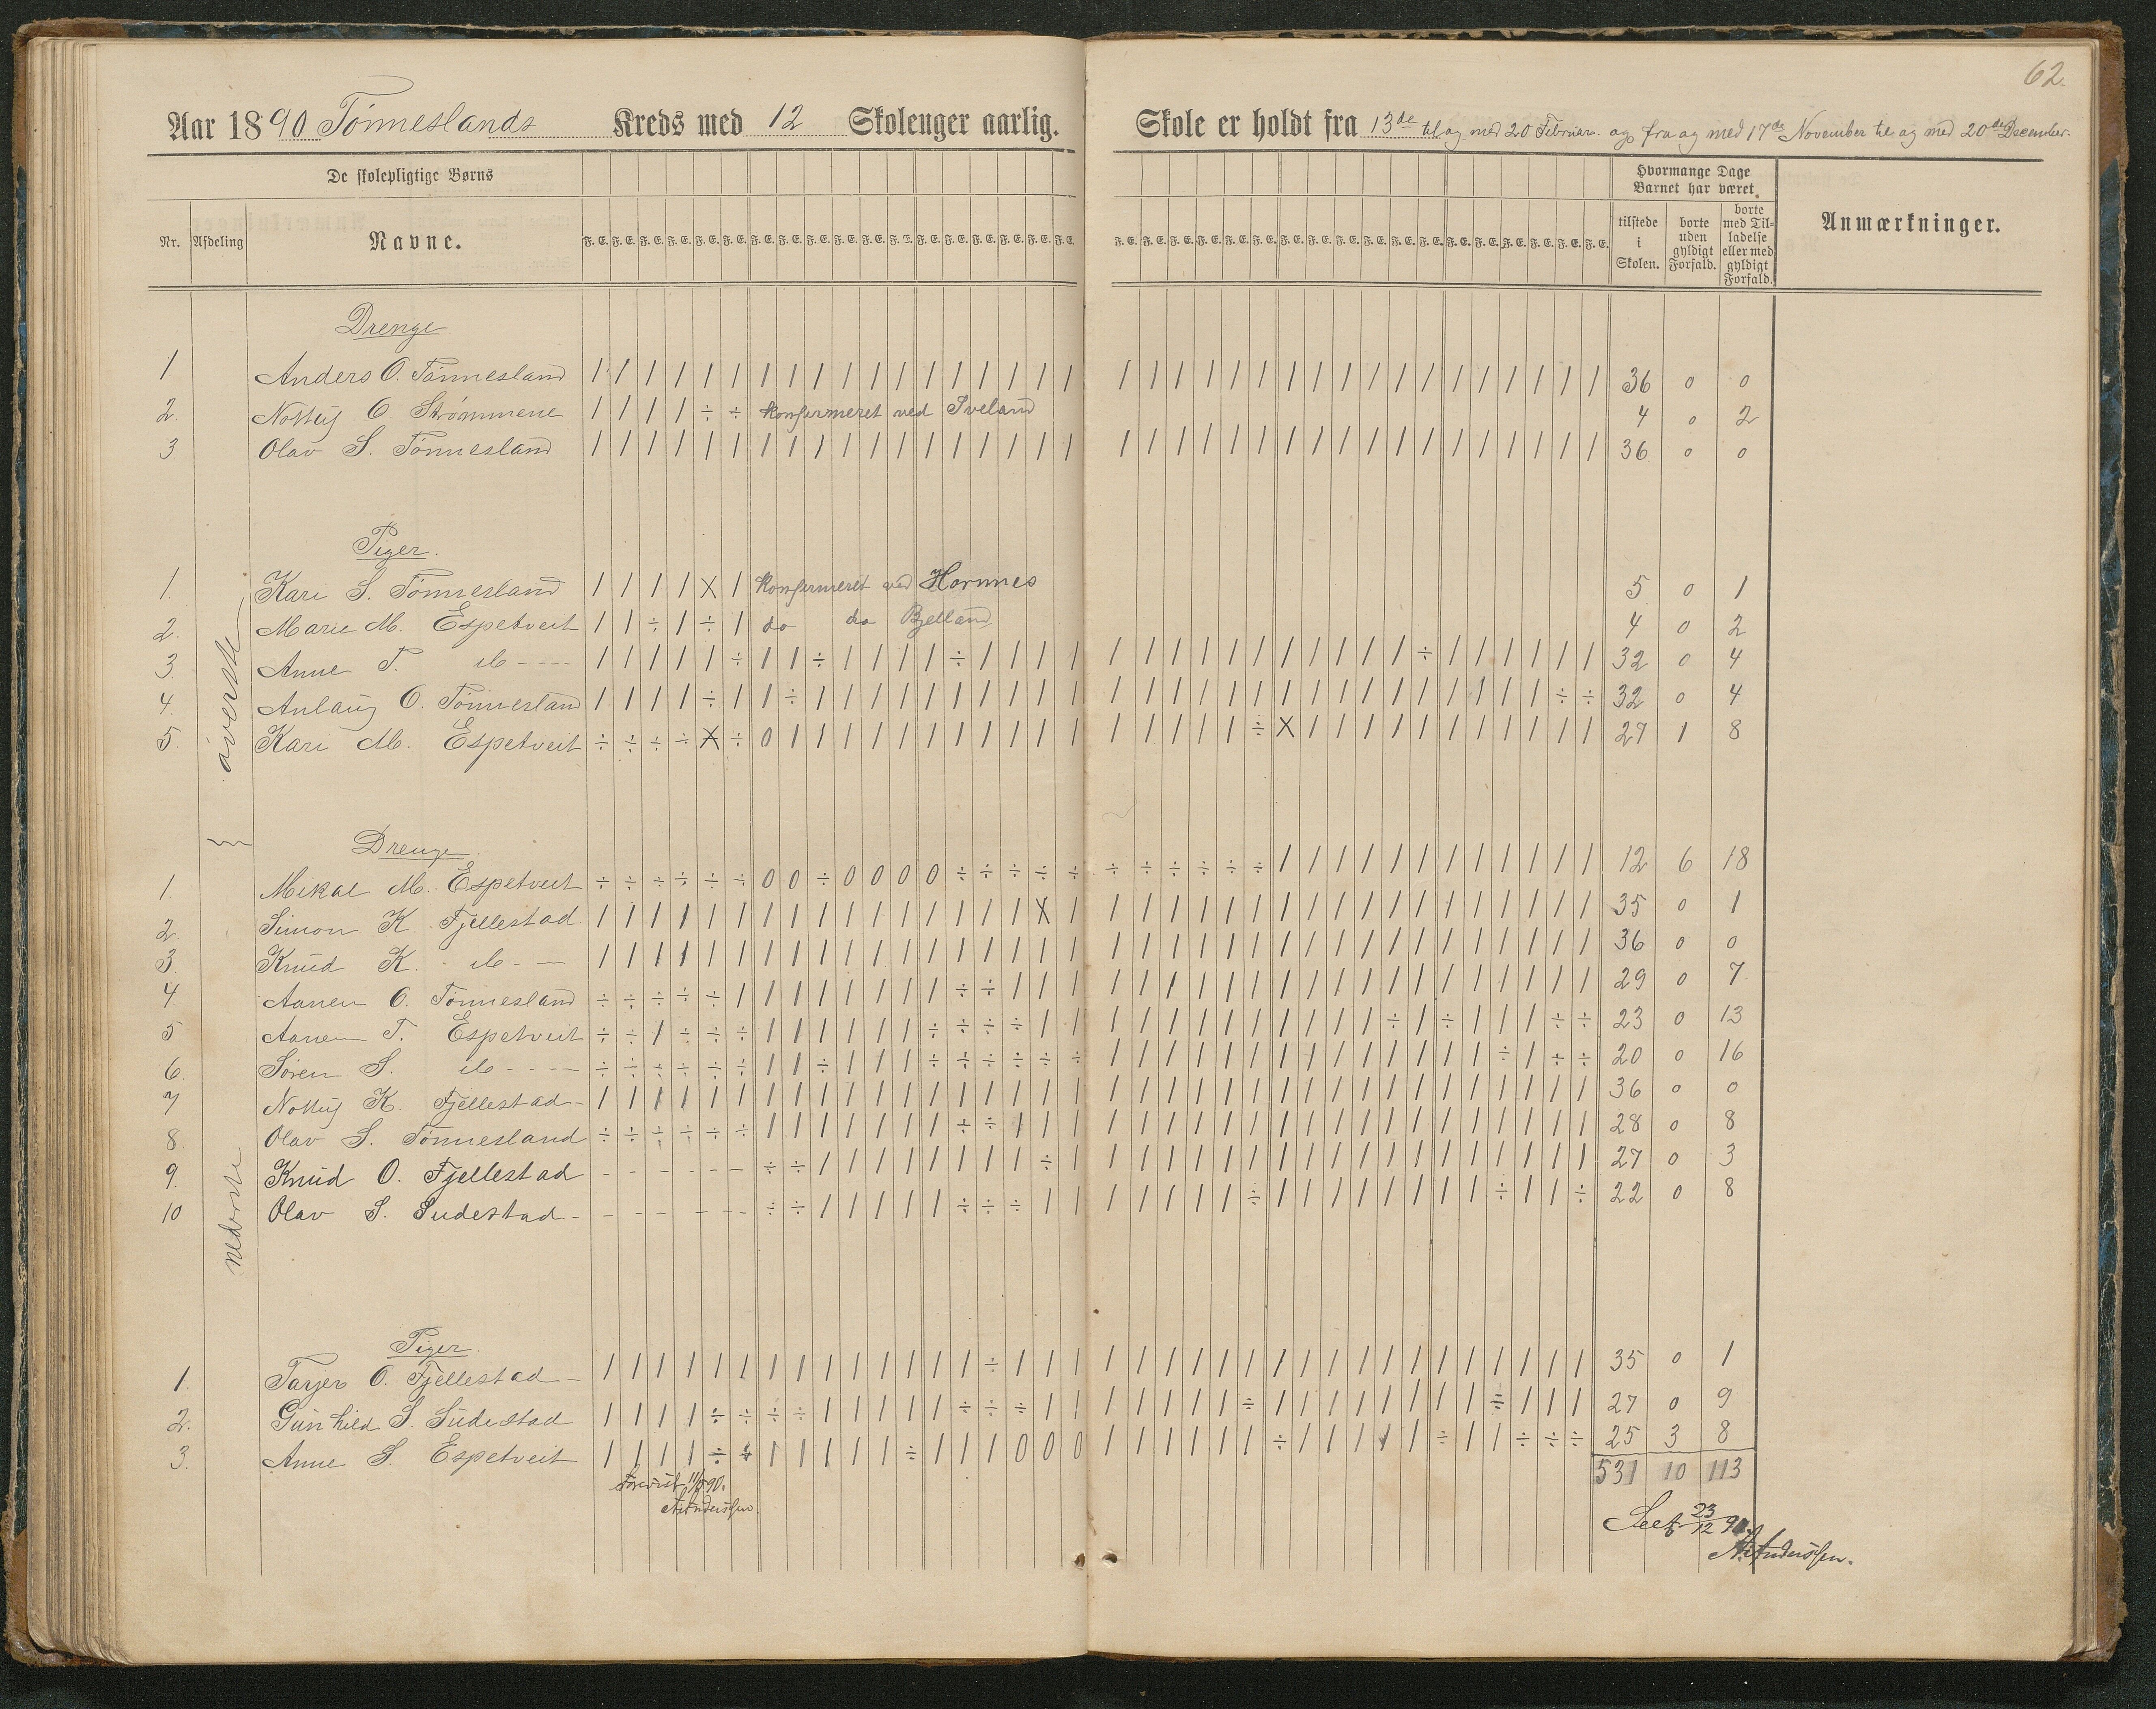 62.
Aar 1890 Tönneslands Kreds med 12 Skoleuger aarlig. Skole er holdt fra 13de til og med 20 Februar. og fra og med 17de November til og med 20de December.
De skolepligtige Børns
Hvormange Dage Barnet har været
Nr. Afdeling Navne. F. E. F. E. F. E. F. E. F. E. F. E. F. E. F. E. F. E. F. E. F. E. F. E. F. E. F. E. F. E. F. E. F. E. F. E. F. E. F. E. F. E. F. E. F. E. F. E. F. E. F. E. F. E. F. E. F. E. F. E. F. E. F. E. F. E. F. E. F. E. F. E. tilstede i Skolen. borte uden gyldigt Forfald. borte med Tilladelse eller med gyldigt Forfald. Anmærkninger.
överste
Drenge
1 Anders O. Tönnesland / / / / / / / / / / / / / / / / / / / / / / / / / / / / / / / / / / / / 36 0 0
2. Nottüg O. Strömmene / / / / ÷ ÷ konfirmeret ved Iveland 4 0 2
3. Olav S. Tönnesland / / / / / / / / / / / / / / / / / / / / / / / / / / / / / / / / / / / / 36 0 0
Piger.
1. Kari S. Tönnesland / / / / X / konfirmeret ved Hornnes 5 0 1
2. Marie M. Espetveit / / ÷ / ÷ / do do Bjelland 4 0 2
3. Anne T. do - - - - / / / / / ÷ / / ÷ / / / / ÷ / / / / / / / / / / / / / / / ÷ / / / / / / 32 0 4
4. Anlaug O. Tönnesland / / / / ÷ / / ÷ / / / / / / / / / / / / / / / / / / / / / / / / / / ÷ ÷ 32 0 4
5. Kari M. Espetveit ÷ ÷ ÷ ÷ X ÷ 0 / / / / / / / / / / / / / / / / ÷ X / / / / / / / / / / / 27 1 8
nederste
Drenge.
1. Mikal M. Espetveit ÷ ÷ ÷ ÷ ÷ ÷ 0 0 ÷ 0 0 0 0 ÷ ÷ ÷ ÷ ÷ ÷ ÷ ÷ ÷ ÷ ÷ / / / / / / / / / / / / 12 6 18
2. Simon K. Fjellestad / / / / / / / / / / / / / / / / X / / / / / / / / / / / / / / / / / / / 35 0 1
3. Knüd K. do - - / / / / / / / / / / / / / / / / / / / / / / / / / / / / / / / / / / / / 36 0 0
4 Aanen O. Tönnesland ÷ ÷ ÷ ÷ ÷ / / / / / / / / ÷ ÷ / / / / / / / / / / / / / / / / / / / / / 29 0 7
5 Aanen T. Espetveit ÷ ÷ / ÷ ÷ ÷ / / / / / / ÷ ÷ ÷ ÷ / / / / / / / / / / / / ÷ / ÷ / / / ÷ ÷ 23 0 13
6. Sören S. do - - - - ÷ ÷ ÷ ÷ ÷ ÷ / / ÷ / / / ÷ ÷ ÷ ÷ ÷ ÷ / / / / / / / / / / / / / / ÷ / ÷ ÷ 20 0 16
7 Nottüg K. Fjellestad - / / / / / / / / / / / / / / / / / / / / / / / / / / / / / / / / / / / / 36 0 0
8 Olav S. Tönnesland ÷ ÷ ÷ ÷ ÷ ÷ / / / / / / / ÷ ÷ / / / / / / / / / / / / / / / / / / / / / 28 0 8
9. Knüd O. Fjellestad - - - - - - ÷ ÷ / / / / / / / / ÷ / / / / / / / / / / / / / / / / / / / 27 0 3
10 Olav S. Sudestad - - - - - - - ÷ ÷ / / / / / ÷ ÷ ÷ / / / / / / / ÷ / / / / / / / / ÷ / / ÷ 22 0 8
Piger.
1. Tarjer O. Fjellestad - / / / / / / / / / / / / / / ÷ / / / / / / / / / / / / / / / / / / / / / 35 0 1
2. Günhild S. Südestad / / / / ÷ ÷ ÷ ÷ / / / / / ÷ ÷ ÷ / / / / / / / ÷ / / / / / / / / ÷ / / / 27 0 9
3. Anne S. Espetveit / / / / ÷ ÷ / / / / / ÷ / / / 0 0 0 / / / / / / ÷ / / / / / ÷ / / ÷ ÷ ÷ 25 3 8
531 10 113
Forevist 11/5 90.
A. Anderssen.
Seet 23/12 90
A. Anderssen.